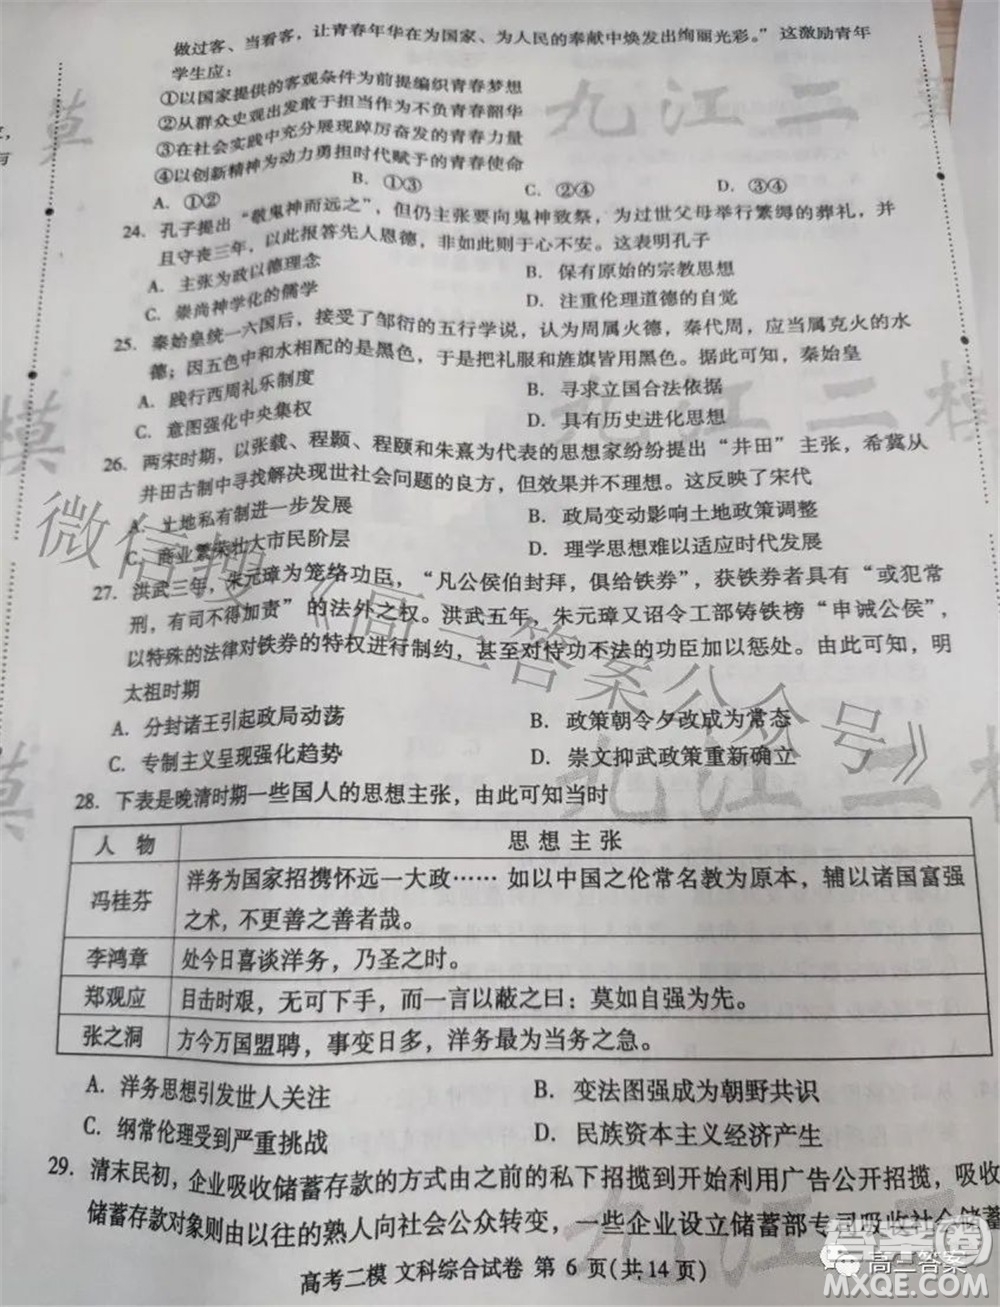 做过客、当看客，让青春年华在为国家、为人民的奉献中焕发出绚丽光彩。”这激励青年
学生应：
①以国家提供的客观条件为前提编织青春梦想
②从群众史观出发敢于担当作为不负青春韶华
③在社会实践中充分展现踔厉奋发的青春力量
④以创新精神为动力勇担时代赋予的青春使命
A. ①② B. ①③ C. ②④ D. ③④
24. 孔子提出“敬鬼神而远之”，但仍主张要向鬼神致祭，为过世父母举行繁缛的葬礼，并
且守丧三年，以此报答先人恩德，非如此则于心不安。这表明孔子
A. 主张为政以德理念 B. 保有原始的宗教思想
C. 崇尚神学化的儒学 D. 注重伦理道德的自觉
25. 秦始皇统一六国后，接受了邹衍的五行学说，认为周属火德，秦代周，应当属克火的水
德；因五色中和水相配的是黑色，于是把礼服和旌旗皆用黑色。据此可知，秦始皇
A. 践行西周礼乐制度 B. 寻求立国合法依据
C. 意图强化中央集权 D. 具有历史进化思想
26. 两宋时期，以张载、程颢、程颐和朱熹为代表的思想家纷纷提出“井田”主张，希冀从
井田古制中寻找解决现世社会问题的良方，但效果并不理想。这反映了宋代
A. 土地私有制进一步发展 B. 政局变动影响土地政策调整
C. 商业繁荣壮大市民阶层 D. 理学思想难以适应时代发展
27. 洪武三年，朱元璋为笼络功臣，“凡公侯伯封拜，俱给铁券”，获铁券者具有“或犯常
刑，有司不得加责”的法外之权。洪武五年，朱元璋又诏令工部铸铁榜“申诫公侯”，
以特殊的法律对铁券的特权进行制约，甚至对恃功不法的功臣加以惩处。由此可知，明
太祖时期
A. 分封诸王引起政局动荡 B. 政策朝令夕改成为常态
C. 专制主义呈现强化趋势 D. 崇文抑武政策重新确立
28. 下表是晚清时期一些国人的思想主张，由此可知当时
人 物 思 想 主 张
冯桂芬 洋务为国家招携怀远一大政…… 如以中国之伦常名教为原本，辅以诸国富强
之术，不更善之善者哉。
李鸿章 处今日喜谈洋务，乃圣之时。
郑观应 目击时艰，无可下手，而一言以蔽之曰：莫如自强为先。
张之洞 方今万国盟聘，事变日多，洋务最为当务之急。
A. 洋务思想引发世人关注 B. 变法图强成为朝野共识
C. 纲常伦理受到严重挑战 D. 民族资本主义经济产生
29. 清末民初，企业吸收储蓄存款的方式由之前的私下招揽到开始利用广告公开招揽，吸收
储蓄存款对象则由以往的熟人向社会公众转变，一些企业设立储蓄部专司吸收社会储蓄
高考二模 文科综合试卷 第 6 页（共14页）
九江二模
九江二模
九江二模
微信搜《高三答案公众号》
高三答案
答案圈
MXQE.COM